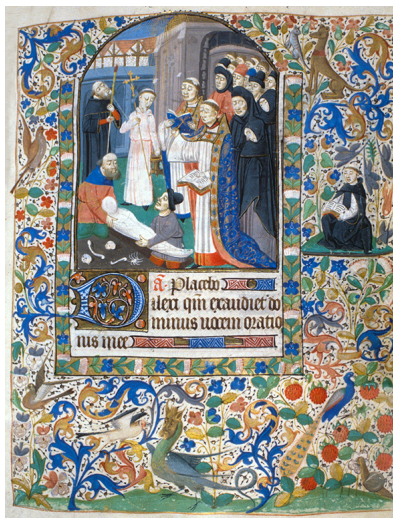 ā. Placebo
Dilexi qm̄ exaudiet do
minus uocem oratio
nis mee